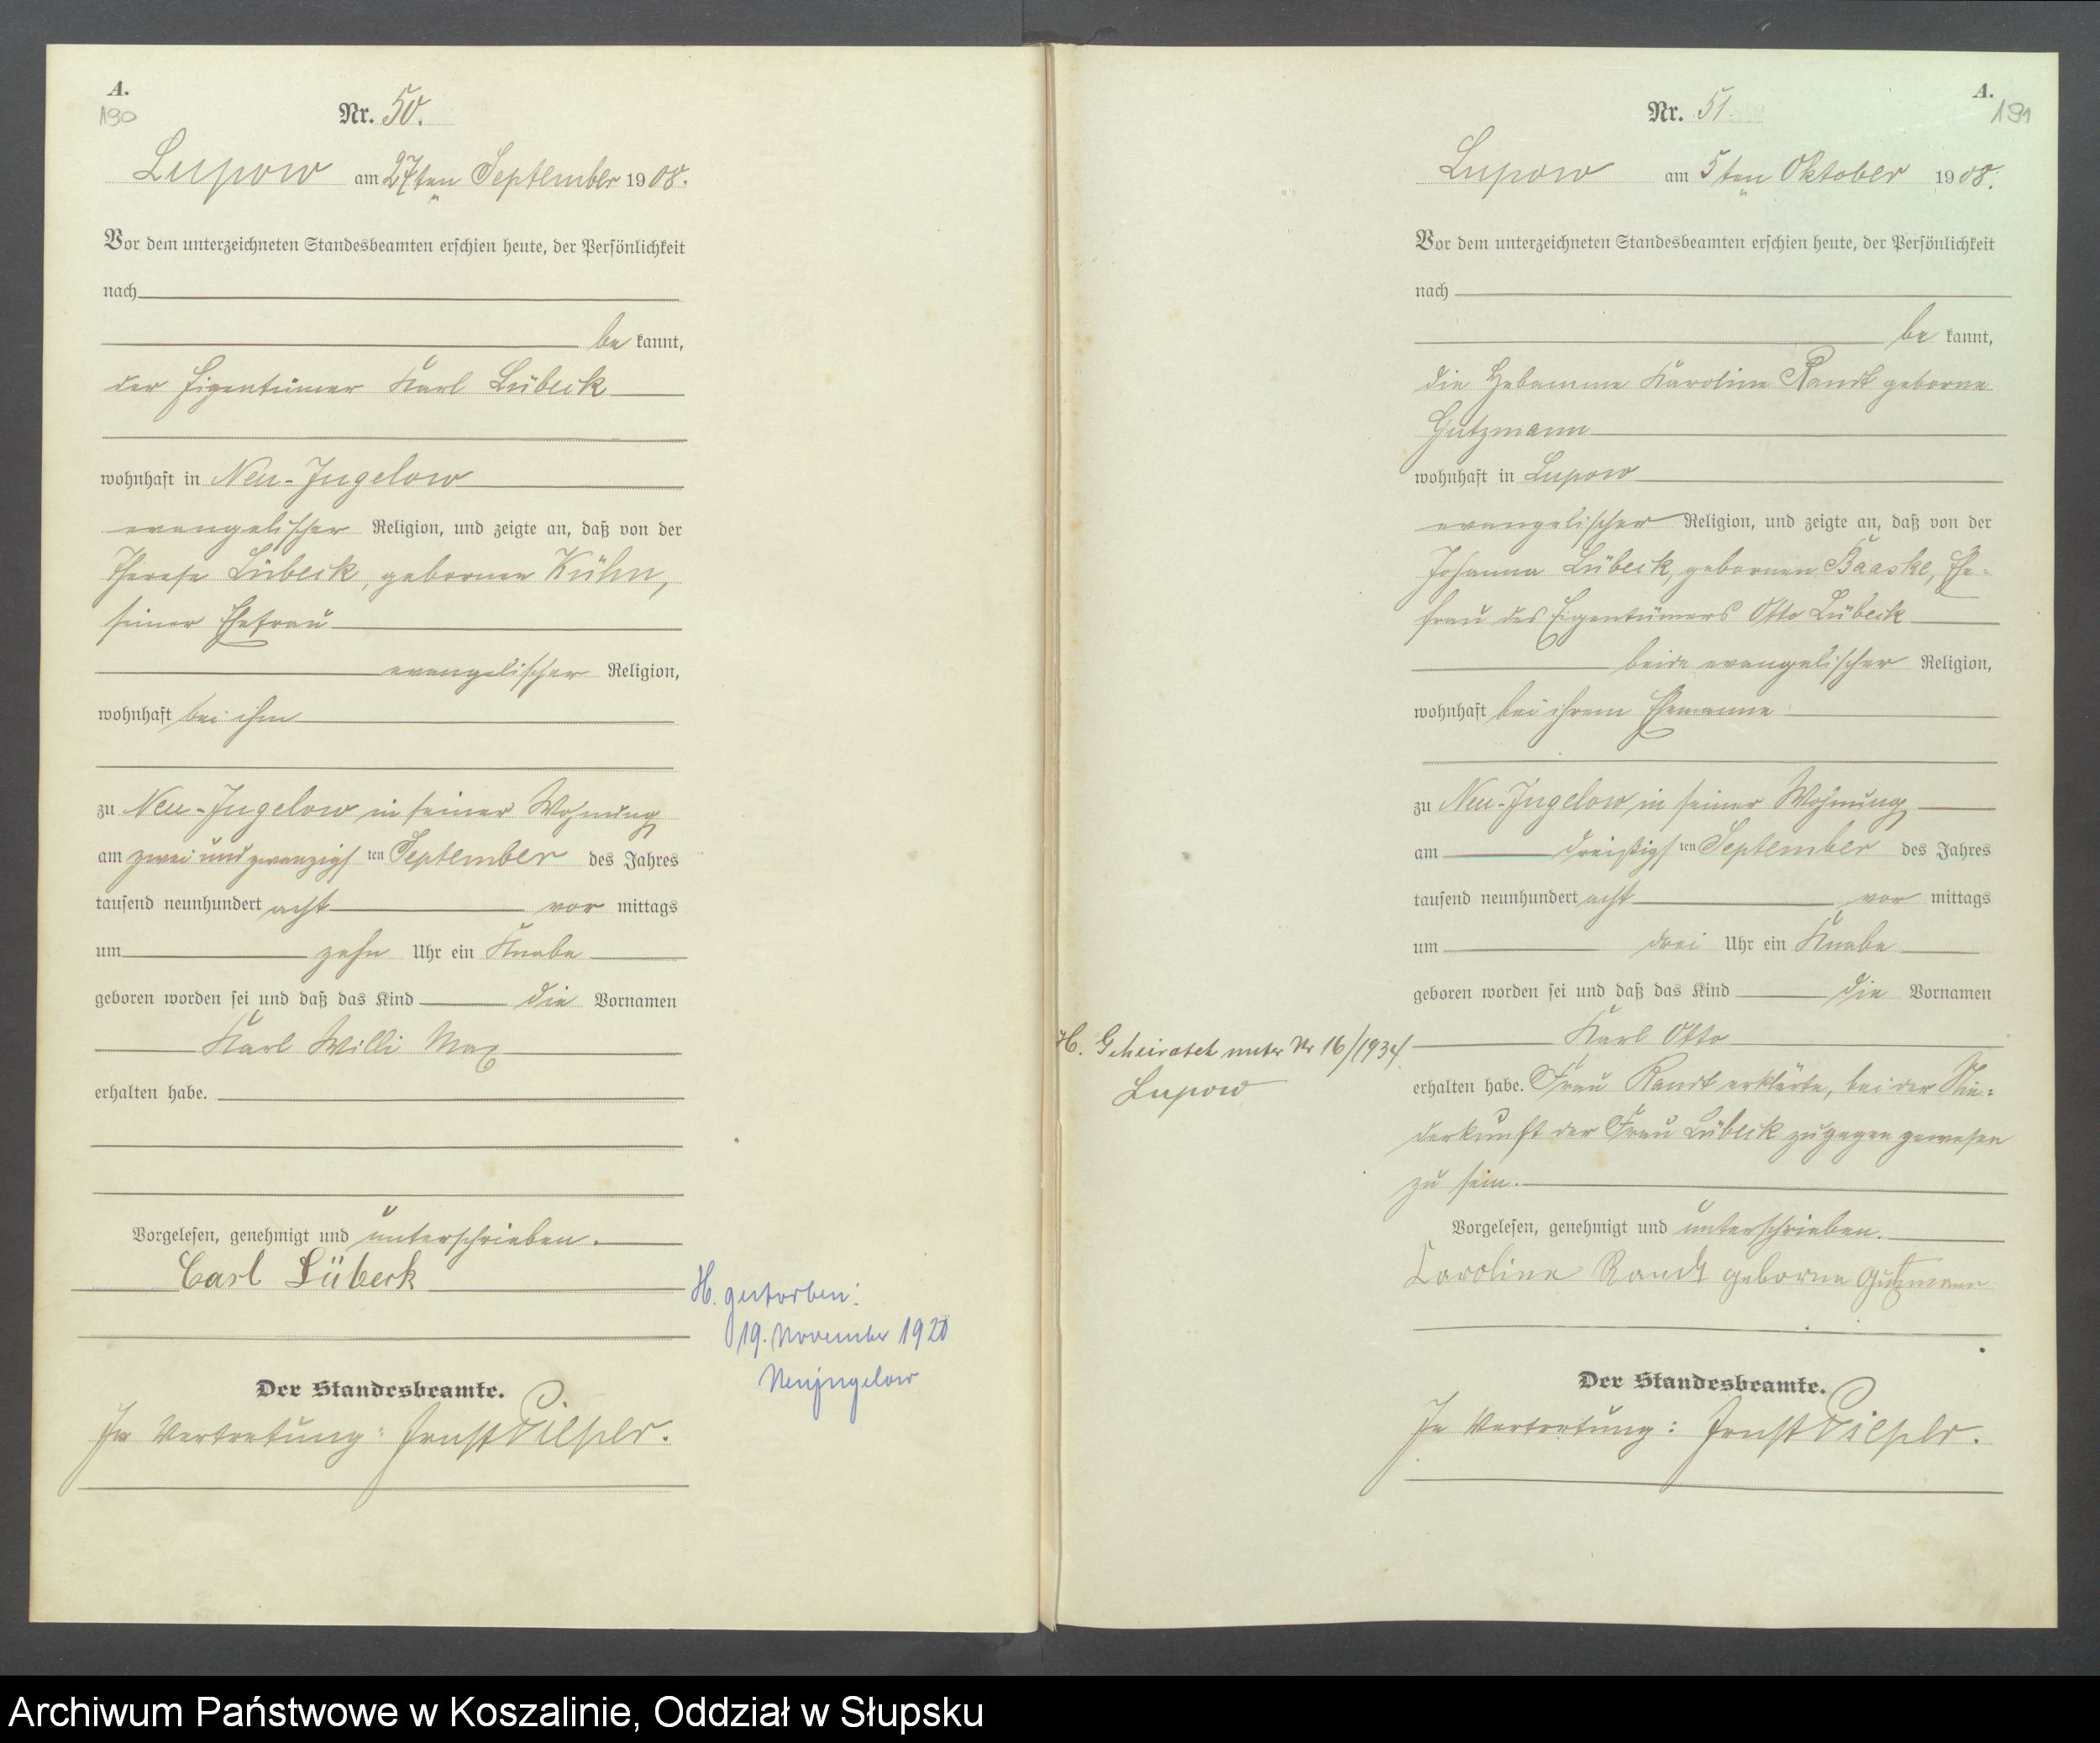 A.
190
Nr. 50.
Lupow am 27ten September 1908.
Vor dem unterzeichneten Standesbeamten erschien heute, der Persönlichkeit
nach
be kannt,
der Eigentümer Karl Lübeck
wohnhaft in Neu-Jugelow
evangelischer Religion, und zeigte an, daß von der
Therese Lübeck, gebornen Kühn,
seiner Ehefrau
evangelischer Religion,
wohnhaft bei ihm
zu Neu-Jugelow in seiner Wohnung
am zwei und zwanzigsten September des Jahres
tausend neunhundert acht vor mittags
um zehn Uhr ein Knabe
geboren worden sei und daß das Kind die Vornamen
Karl Willi Max
erhalten habe.
Vorgelesen, genehmigt und unterschrieben.
Carl Lübeck
H. gestorben:
19. November 1920
Neujugelow
Der Standesbeamte.
In Vertretung: Ernst
A.
191
Nr. 51.
Lupow am 5ten Oktober 1908.
Vor dem unterzeichneten Standesbeamten erschien heute, der Persönlichkeit
nach
be kannt,
die Hebamme Karoline Randt geborne
Gutzmann
wohnhaft in Lupow
evangelischer Religion, und zeigte an, daß von der
Johanna Lübeck, gebornen Baaske, Ehe-
frau des Eigentümers Otto Lübeck
beide evangelischer Religion,
wohnhaft bei ihrem Ehemanne
zu Neu-Jugelow in seiner Wohnung
am dreißigsten September des Jahres
tausend neunhundert acht vor mittags
um drei Uhr ein Knabe
geboren worden sei und daß das Kind die Vornamen
Karl Otto
H. Geheiratet unter Nr 16/1934
Lupow
erhalten habe. Frau Randt erklärte, bei der Nie-
derkunft der Frau Lübeck zugegen gewesen
zu sein.
Vorgelesen, genehmigt und unterschrieben.
Karoline Randt geborne Gutzmann
Der Standesbeamte.
In Vertretung: Ernst
Archiwum Państwowe w Koszalinie, Oddział w Słupsku